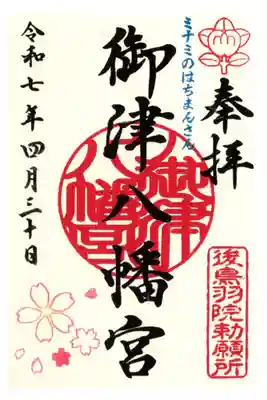 奉拝
ミナミのはちまんさん
御津八幡宮
令和七年四月三十日
御津八幡宮
後鳥羽院勅願所